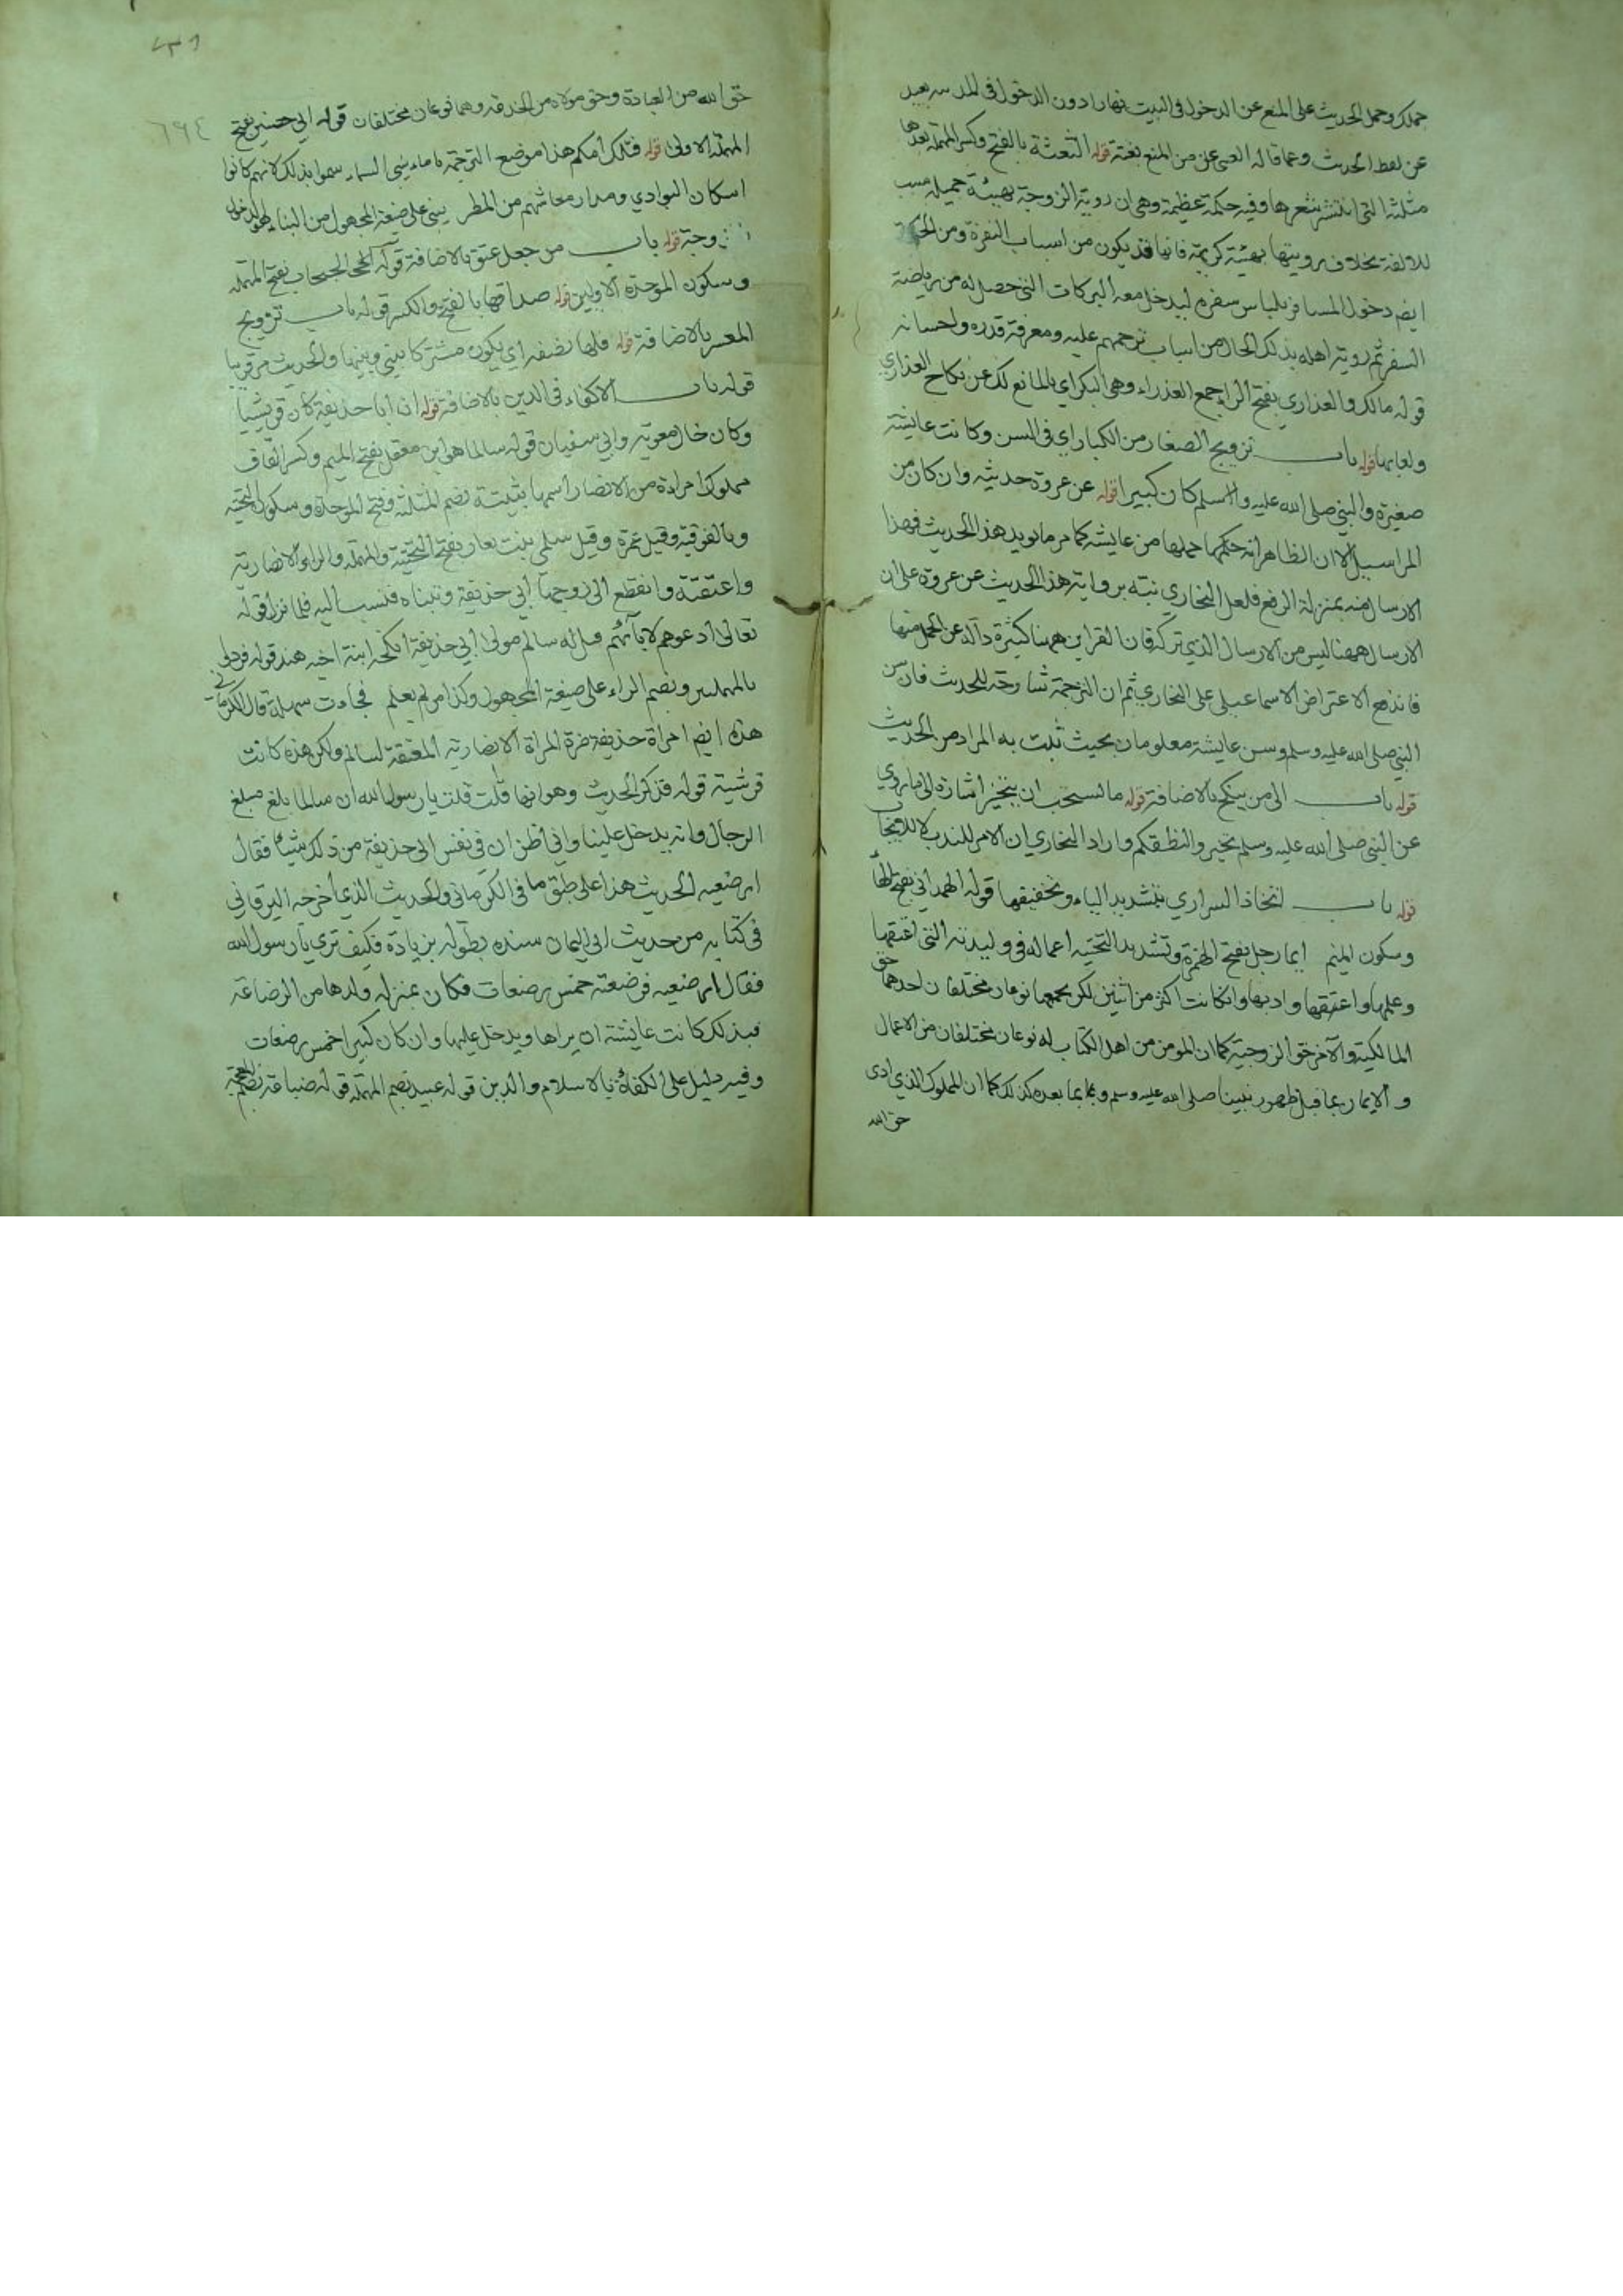 حملك وحمل الحديث على المنع عن الدخول في البيت نهارا دون الدخول في المدينة بعيد
عن لفظ الحديث وعما قاله العيني من المنع بغتة قوله الشعثة بالفتح وكسر المهملة بعدها
مثلثة التي انتشر شعرها وفيه حكمة عظيمة وهي ان روية الزوجة بهيئة جميلة سبب
للالفة بخلاف رويتها بهيئة كريهة فانها قد يكون من اسباب النفرة ومن الحكمة
ايضا دخول المسافر بلباس سفره ليدخل معه البركات التي حصل له من رياضة
السفر ثم روية اهله بذلك الحال من اسباب ترحمهم عليه ومعرفة قدره واحسانه
قوله مالك والعذاري بفتح الراء جمع العذراء وهي البكر اي بالمانع لك عن نكاح العذاري
ولعابها قوله باب تزويج الصغار من الكبار اي في السن وكانت عايشة
صغيرة والنبي صلى الله عليه وسلم كان كبيرا قوله عن عروة حديثه وان كان من
المراسيل الا ان الظاهر انه حكمها حملها من عايشة كما مر ما يويد هذا الحديث فهذا
الارسال منه بمنزلة الرفع فلعل البخاري نبه برواية هذا الحديث عن عروة على ان
الارسال ههنا ليس من الارسال الذي تركه فان القراين ههنا كثيرة دالة عن الحمل منها
فاندفع الاعتراض الاسماعيلي على البخاري ثم ان الترجمة للحديث فان سن
النبي صلى الله عليه وسلم وسن عايشة معلومان بحيث ثبت به المراد من الحديث
قوله باب الى من ينكح بالاضافة قوله ما يستحب ان يتخير اشارة الى ما روي
عن النبي صلى الله عليه وسلم تخيروا لنطفكم واراد البخاري ان الامر للندب لا للايجاب
قوله باب اتخاذ السراري بتشديد الياء وتخفيفها قوله الهمداني بفتح الهاء
وسكون الميم ايما رجل بفتح الهمزة وتشديد التحتية اعماله في وليدته التي اعتقها
وعلمها واعتقها وادبها وان كانت اكثر من اثنين لكن يجمعها نوعان مختلفان احدهما حق
المالكية والآخر حق الزوجية كما ان المومن من اهل الكتاب له نوعان مختلفان من الاعمال
والايمان بما قبل ظهور نبينا صلى الله عليه وسلم وبما بعده كذلك كما ان المملوك الذي ادى
حق الله
٦٩٤
حق الله من العبادة وحق مولاه من الخدمة وهما نوعان مختلفان قوله ابي حصين بفتح
المهملة الاولى قوله فتلك امكم هذا موضع الترجمة يا ماء بني السماء سموا بذلك لانهم كانوا
اسكان البوادي ومدار معاشهم من المطر يبنى على صيغة المجهول من البناء وهو الدخول
بزوجة قوله باب من جعل عتق بالاضافة قوله الحبحاب بفتح المهملة
وسكون الموحدة الاولين قوله صداقها بالفتح والكسر قوله باب تزويج
المعسر بالاضافة قوله فلها نصفه اي يكون مشتركا بيني وبينها والحديث مر قريبا
قوله باب الاكفاء في الدين بالاضافة قوله ان ابا حذيفة كان قريشيا
وكان خال معوية وابي سفيان قوله سالما هو ابن معقل بفتح الميم وكسر القاف
مملوك امراءة من الانصار اسمها ثبيتة بضم المثلثة وفتح الموحدة وسكون التحتية
وبالفوقية وقيل عمرة وقيل سلمى بنت يعار بفتح التحتية والمهملة والراء الانصارية
واعتقته وانقطع الى زوجها ابي حذيفة وتبناه فنسب اليه فلما نزل قوله
تعالى ادعوهم لابآئهم قيل له سالم مولى ابي حذيفة انكحه ابنة اخيه هند قوله فردوا
بالمهملتين وبضم الراء على صيغة المجهول وكذا من لم يعلم فجاءت سهلة قال الكرماني
هذه ايضا امراة حذيفة ضرة المراة الانصارية المعتقة لسالم ولكن هذه كانت
قرشية قوله فذكر الحديث وهو انها قالت قلت يا رسول الله ان سالما بلغ مبلغ
الرجال وانه يدخل علينا واني اظن ان في نفس ابي حذيفة من ذلك شيئا فقال
ارضعيه الحديث هذا على طبق ما في الكرماني والحديث الذي اخرجه البرقاني
في كتابه من حديث ابي اليمان سنده بطوله بزيادة فكيف ترى يا رسول الله
فقال ارضعيه فرضعته خمس رضعات فكان بمنزلة ولدها من الرضاعة
فبذلك كانت عايشة ان يراها ويدخل عليها وان كان كبيرا خمس رضعات
وفيه دليل على الكفاءة بالاسلام والدين قوله عبيد بضم المهملة قوله ضباعة بضم المعجمة